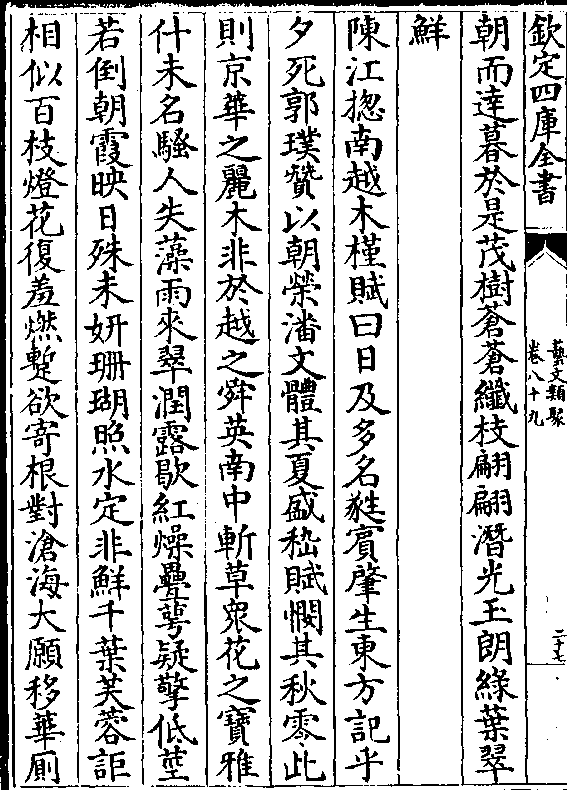 欽定四庫全書
藝文類聚
卷八十九
二十七
朝而達暮於是茂樹蒼蒼纖枝翩翩潛光玉朗綠葉翠
鮮
陳江揔南越木槿賦曰日及多名蕤賓肇生東方記乎
夕死郭璞贊以朝榮潘文體其夏盛嵇賦憫其秋零此
則京華之麗木非於越之舜英南中斬草衆花之寶雅
什未名騷人失藻雨來翠潤露歇紅燥疊萼疑擎低莖
若倒朝霞映日殊未妍珊瑚照水定非鮮千葉芙蓉詎
相似百枝燈花復羞燃暫欲寄根對滄海大願移華廁